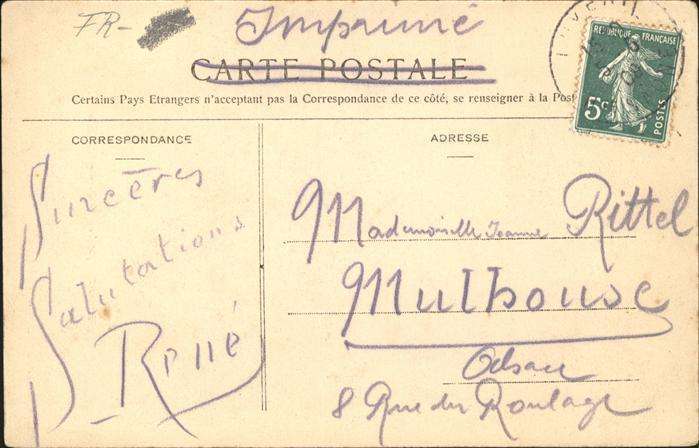 FR-
Imprimé
CARTE POSTALE
Certains Pays Etrangers n'acceptant pas la Correspondance de ce côté, se renseigner à la Post
RÉPUBLIQUE FRANÇAISE
5c
POSTES
CORRESPONDANCE
ADRESSE
Sincères
Salutations
René
Mademoiselle Jeanne Rittel
Mulhouse
Alsace
8 Rue du Roulage